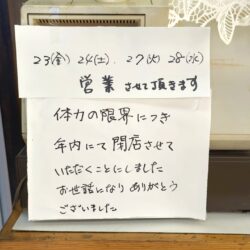 23(金) 24(土). 27(火) 28(水)
営業 させて頂きます
体力の限界につき
年内にて閉店させて
いただくことにしました
お世話になり ありがとう
ございました